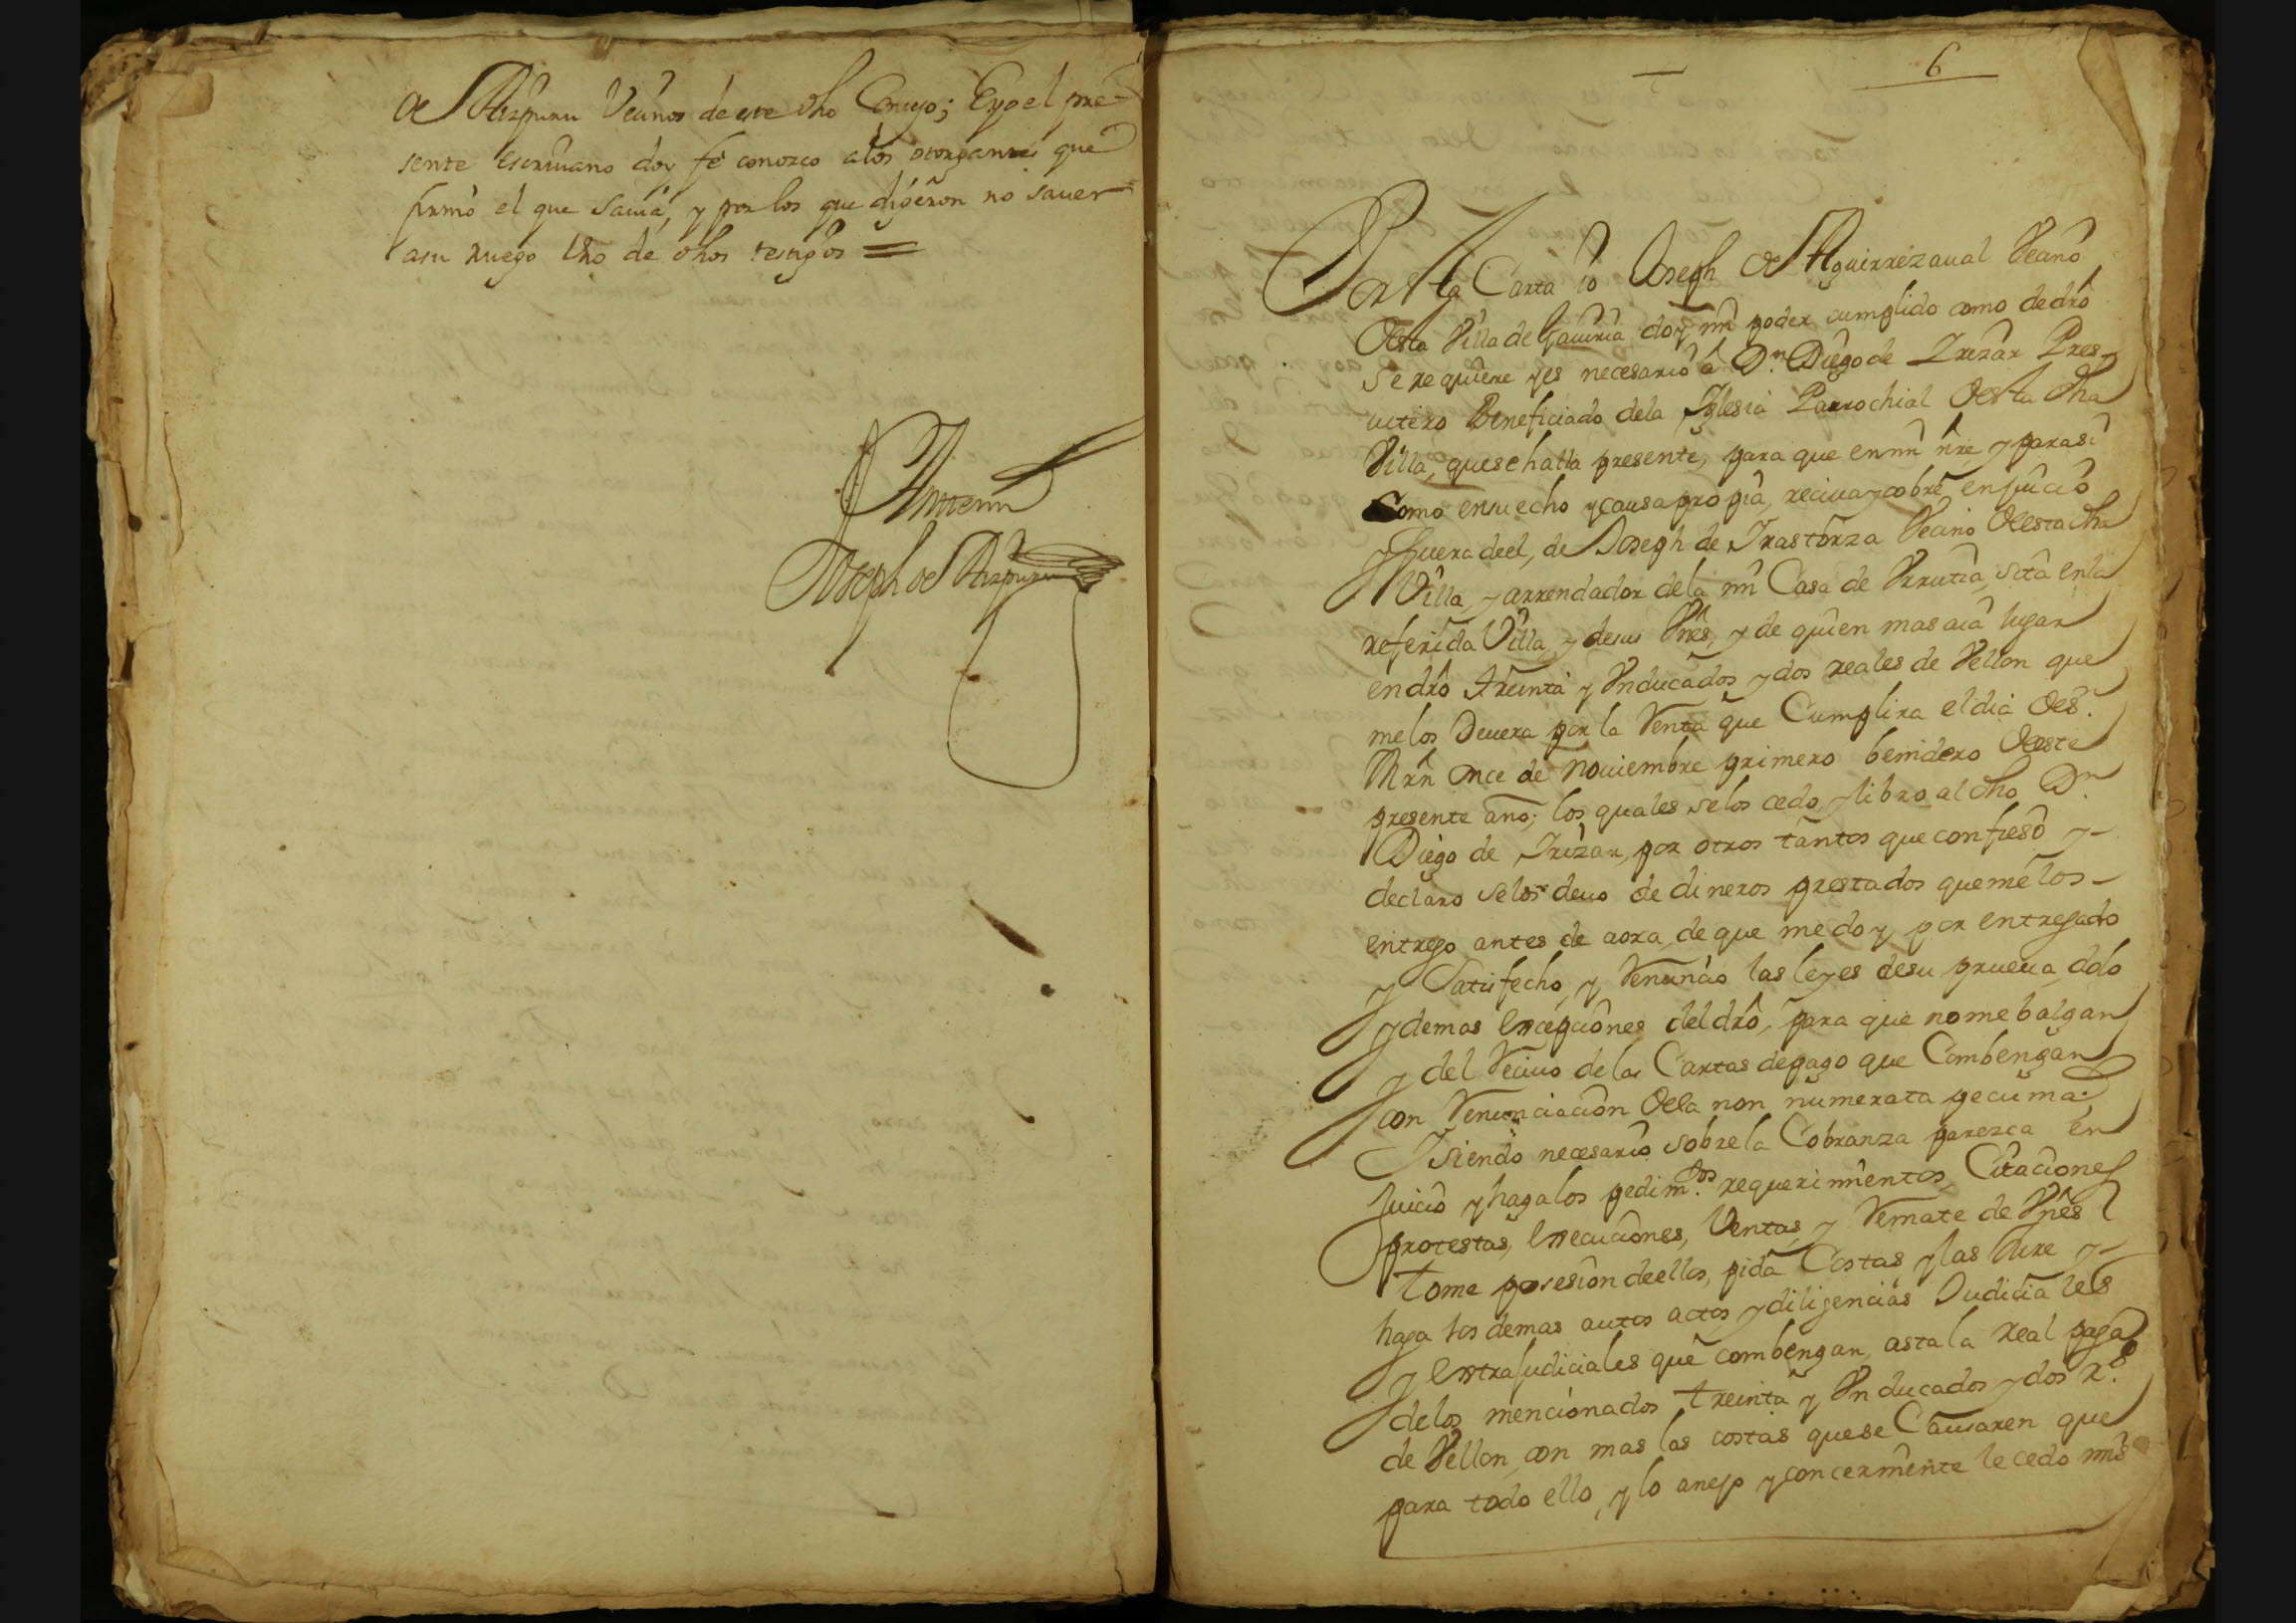 de Aizpuru Vecinos de este dho Concejo; Eyo el pre-
sente escriuano doy fe conozco a los otorgantes que
firmò el que savia, y por los que digeron no saver
asu ruego Uno de dhos testigos =
Antemi
Joseph de Aizpuru
6
Por esta Carta io Joseph de Aguirrezaual Vecino
desta Villa de Gauiria doy mi poder cumplido como de dro
se requiere yes necesario â Dn. Diego de Irizar Pres-
uitero Beneficiado dela Iglesia Parrochial desta dha
Villa, quesehalla presente, para que enmi nre y parasi
Como ensuecho ycausapropia, reciuaycobre enjuicio
yfuera deel, de Joseph de Irastorza Vecino destadha
Villa, y arrendador dela mi Casa de Vrrutia, sita enla
referida Villa, y desus Vnes, y de quien mas aia lugar
endro treinta y Vnducados ydos reales de Vellon que
melos Deuera por la Renta que Cumplira eldia des.
Mrn once de Nouiembre primero benidero deeste
presente año; los quales selos cedo, ylibro al dho Dn.
Diego de Irizar, por otros tantos que confieso y-
declaro selos deuo de dineros prestados quemelos-
entrego antes de aora, de que me doy por entregado
y Satisfecho, y Renuncio las leyes desu prueua, dolo
ydemas excepciones deldro, para que nome balgan
y del Reciuo delas Cartas depago que Combengan
con Renunciacion dela non numerata pecunia;
Ysiendo necesario sobrela Cobranza parezca en
Juicio yhagalos pedimtos. requerimientos, Citaciones
protestas, execuciones, Ventas, y Remate de Vnes
tome posesion deellos, pida Costas ylas Jure y-
haga los demas autos actos, ydiligencias Judiciales
y extrajudiciales que combengan, asta la real paga
delos mencionados treinta y Vn ducados ydos Rs.
de Vellon, con mas las costas quese Causaren que
para todo ello, ylo anejo yconcerniente le cedo mis